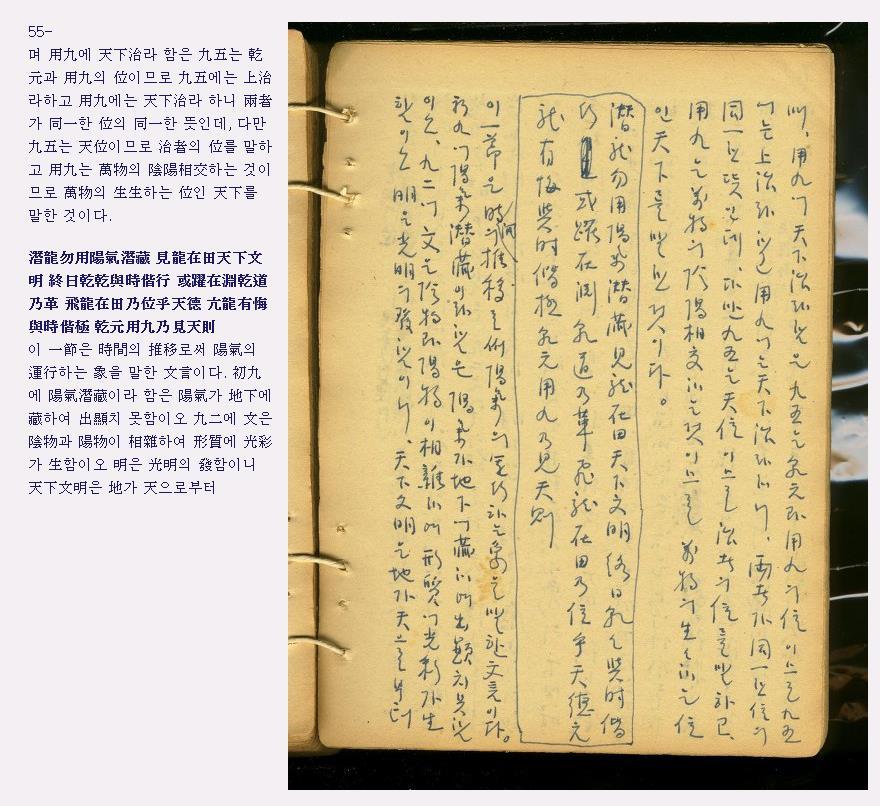 55-
며 用九에 天下治라 함은 九五는 乾
元과 用九의 位이므로 九五에는 上治
라하고 用九에는 天下治라 하니 兩者
가 同一한 位의 同一한 뜻인데, 다만
九五는 天位이므로 治者의 位를 말하
고 用九는 萬物의 陰陽相交하는 것이
므로 萬物의 生生하는 位인 天下를
말한 것이다.
潛龍勿用陽氣潛藏 見龍在田天下文
明 終日乾乾與時偕行 或躍在淵乾道
乃革 飛龍在田乃位乎天德 亢龍有悔
與時偕極 乾元用九乃見天則
이 一節은 時間의 推移로써 陽氣의
運行하는 象을 말한 文言이다. 初九
에 陽氣潛藏이라 함은 陽氣가 地下에
藏하여 出顯치 못함이오 九二에 文은
陰物과 陽物이 相雜하여 形質에 光彩
가 生함이오 明은 光明의 發함이니
天下文明은 地가 天으로부터
며, 用九에 天下治라 함은 九五는 乾元과 用九의 位이므로 九五
에는 上治라하고 用九에는 天下治라 하니, 兩者가 同一한 位의
同一한 뜻인데, 다만 九五는 天位이므로 治者의 位를 말하고,
用九는 萬物의 陰陽相交하는 것이므로 萬物의 生生하는 位
인 天下를 말한 것이다。
潛龍勿用陽氣潛藏見龍在田天下文明 終日乾乾與時偕
行 或躍在淵 乾道乃革 飛龍在田乃位乎天德 亢
龍有悔 與時偕極 乾元用九乃見天則
이 一節은 時間의 推移로써 陽氣의 運行하는 象을 말한 文言이다。
初九에 陽氣潛藏이라 함은 陽氣가 地下에 藏하여 出顯치 못함
이오, 九二에 文은 陰物과 陽物이 相雜하여 形質에 光彩가 生
함이오 明은 光明의 發함이니, 天下文明은 地가 天으로부터